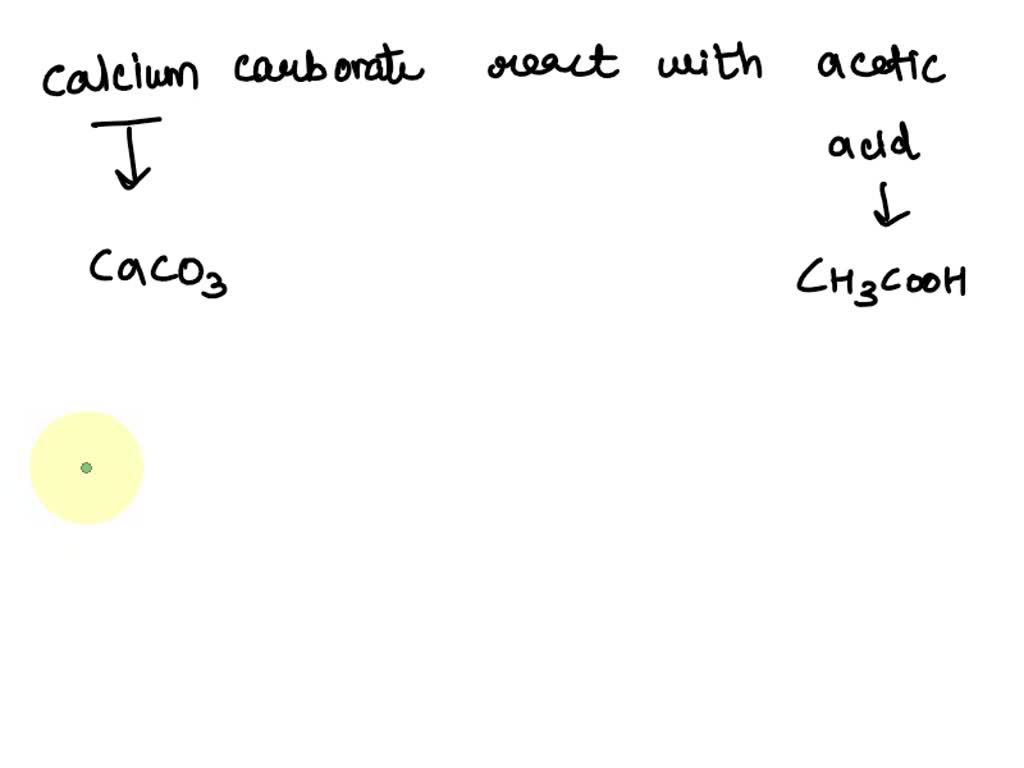 calcium carbonate react with acetic
acid
CaCO₃
CH₃COOH